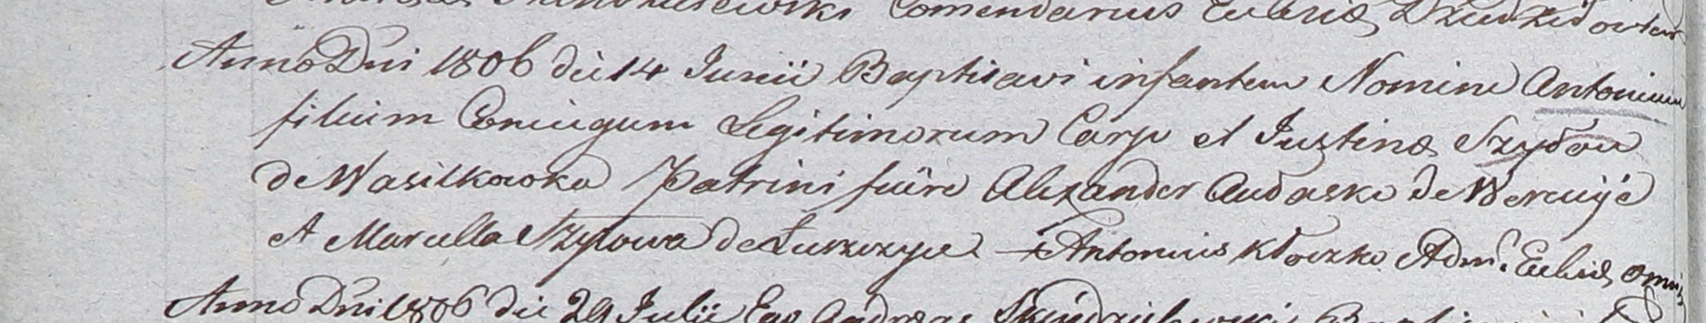 Comendarius Eccliæ
Anno Dni 1806 die 14 Junii Baptisavi infantem Nomine Antonium
filium Coniugum Legitimorum Carp et Justinæ Szyłow
de Wasilkowka Patrini fuere Alexander Audasko de
et Marcella Szyłowa de Antonius Kłoczko Adm. Eccliæ
Anno Dni 1806 die 29 Julii Ego Andreas